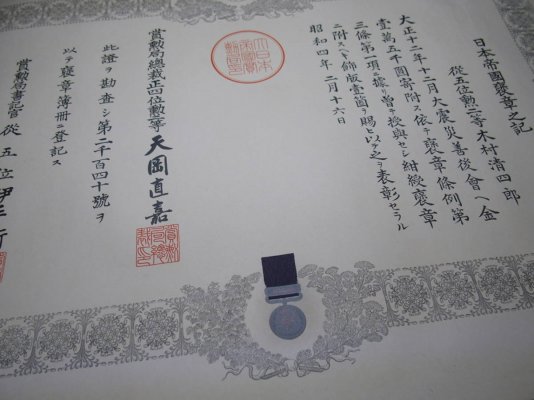 日本帝國褒章之記
從五位勳二等木村清四郎
大正十二年十二月大震災善後會ヘ金
壹萬五千圓寄附ス依テ褒章條例第
三條第二項ニ據リ曾テ授與セシ紺綬褒章
ニ附スヘキ飾版壹箇ヲ賜ヒ以テ之ヲ表彰セラル
昭和四年二月十六日
賞勳局總裁正四位勳二等 天岡直嘉
此證ヲ勘査シ第二千百四十號ヲ
以テ褒章簿冊ニ登記ス
賞勳局書記官從五位伊